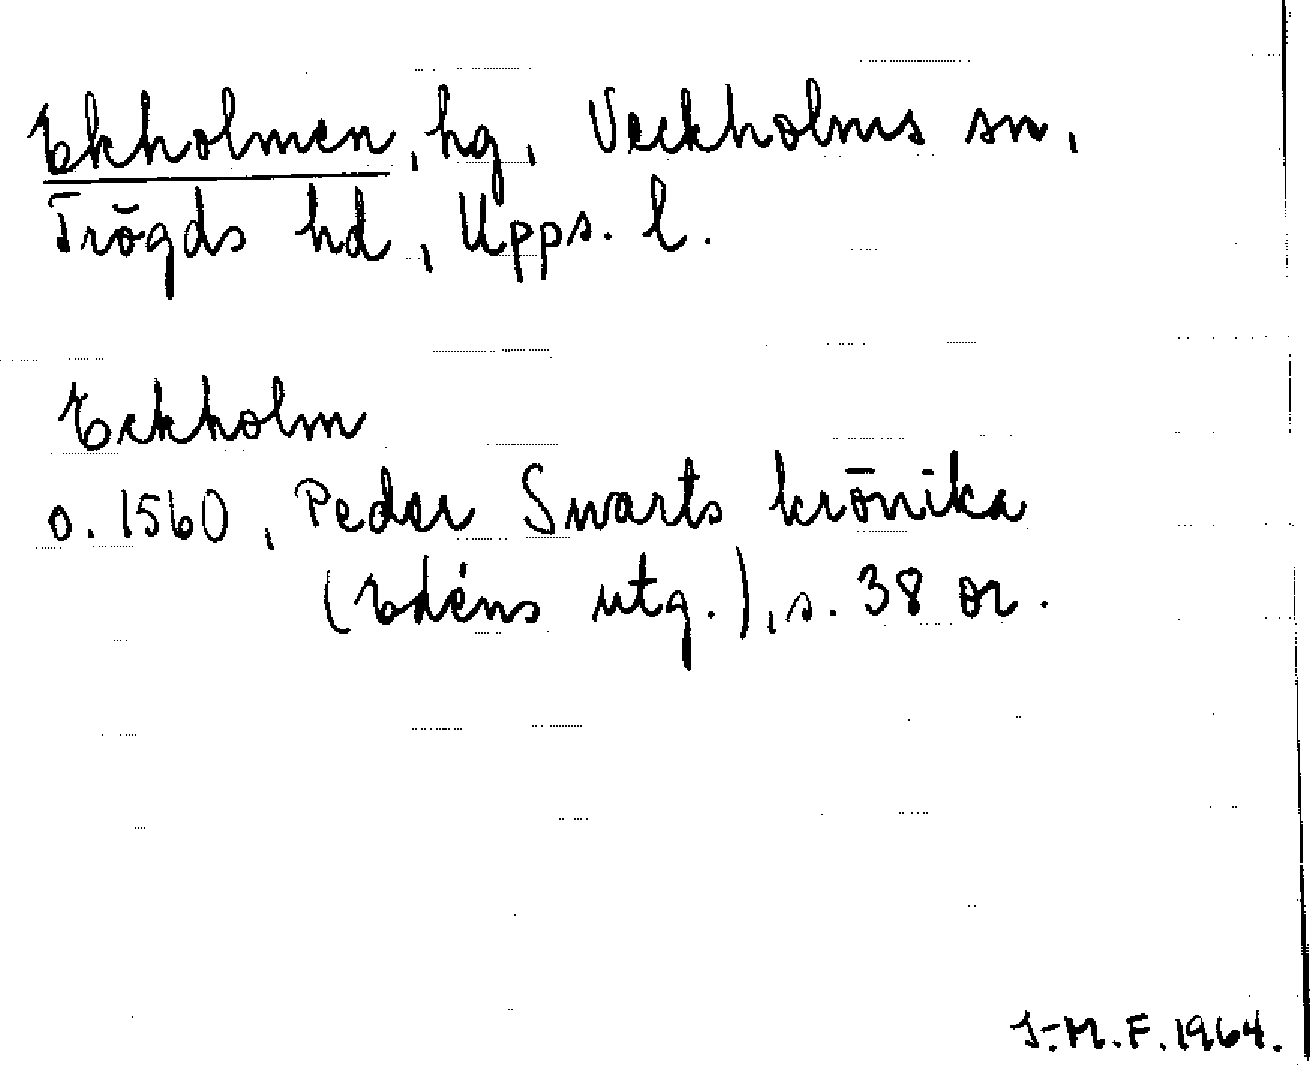 Ekholmen, hg, Veckholms sn,
Trögds hd, Upps. l.
Eckholm
o. 1560, Peder Swarts krönika
(Edéns utg.), s. 38 or.
I-M.F. 1964.